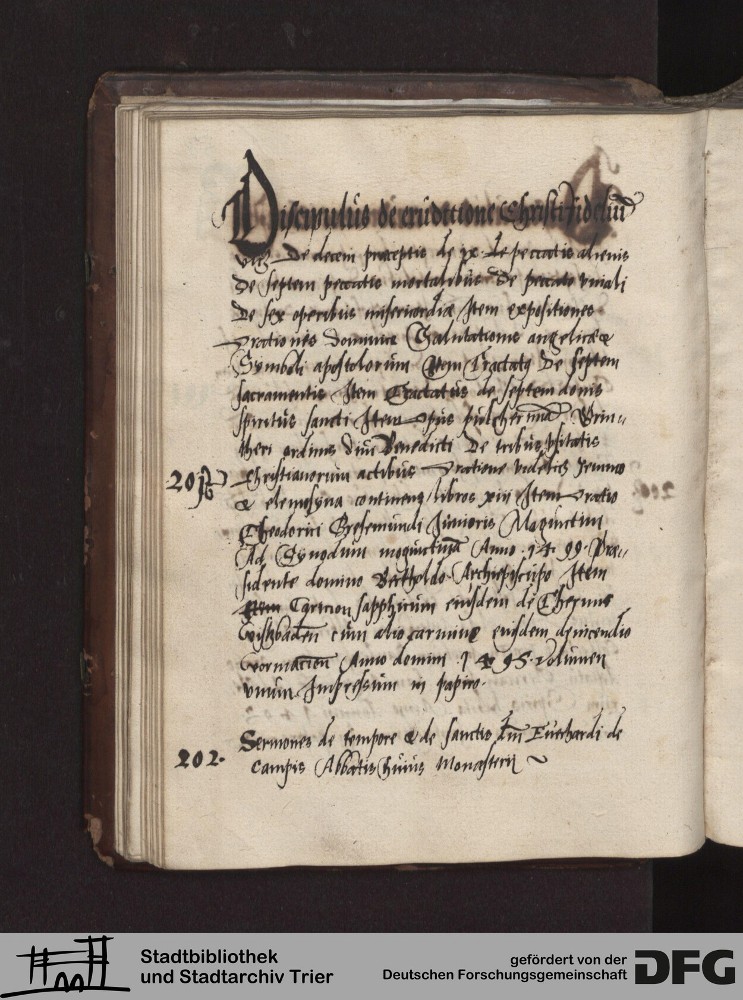 Discipulus de eruditione Christi fidelium
De decem praeceptis de ix de peccatis alienis
De septem peccatis mortalibus De peccato veniali
De sex operibus misericordiae Item expositiones
orationis dominicae Salutationis angelicae &
Symboli apostolorum Item Tractatus De septem
sacramentis Item Tractatus de septem donis
spiritus sancti Item opus pulcherrimum
ordinis divi Benedicti De tribus usitatis
201 Christianorum actibus Oratione videlicet Jeiunio
& elemosyna continens libros xiii Item oratio
Theodorici Gresemundi Junioris Moguntini
Ad Synodum moguntinam Anno 1499 Prae-
sidente domino Bertholdo Archiepiscopo Item
Item Carmen sapphicum eiusdem de Thermis
Wisbaden cum alio carmine eiusdem de incendio
Anno domini 1495 Volumen
unum Impressum in papiro.
Sermones de tempore & de sanctis domini Euerhardi de
202. Campis Abbatis huius Monasterii
Stadtbibliothek
und Stadtarchiv Trier
gefördert von der
Deutschen Forschungsgemeinschaft
DFG